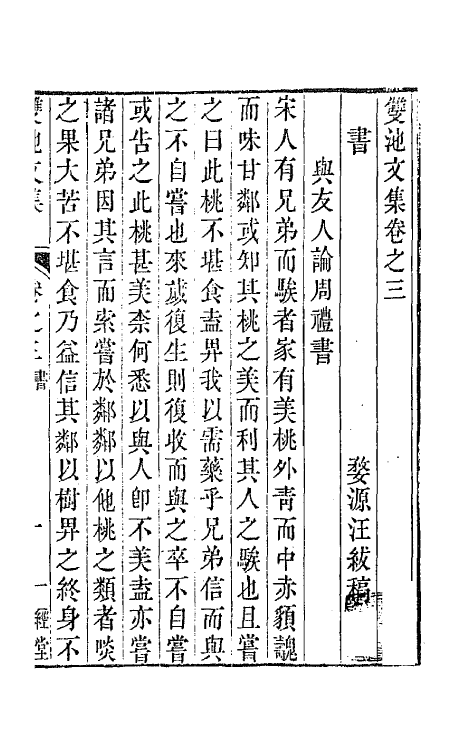 雙池文集卷之三
婺源汪紱稿
書
與友人論周禮書
宋人有兄弟而騃者家有美桃外靑而中赤䫉醜
而味甘鄰或知其桃之美而利其人之騃也且嘗
之曰此桃不堪食盍畀我以需藥乎兄弟信而與
之不自嘗也來歲復生則復收而與之卒不自嘗
或告之此桃甚美柰何悉以與人卽不美盍亦嘗
諸兄弟因其言而索嘗於鄰鄰以他桃之類者啖
之果大苦不堪食乃益信其鄰以樹畀之終身不
雙池文集 卷之三書 一 一經堂